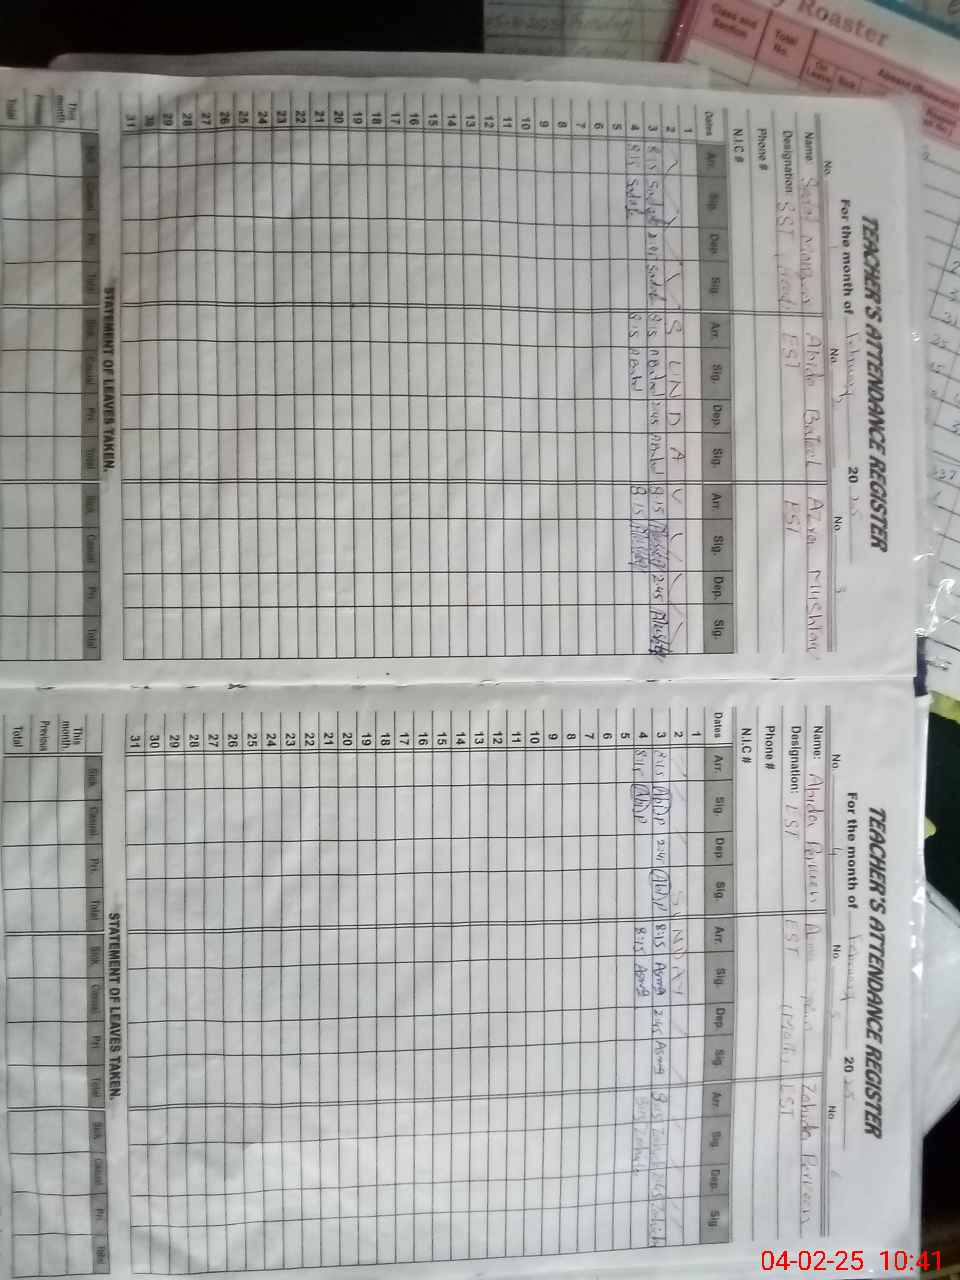 y Roaster
Class and Section
Total No.
On Leave
Sick
TEACHER'S ATTENDANCE REGISTER
For the month of February 2025
No. 1 No. 2 No. 3
Name: Abida Batool Azra Mushtaq
Designation: SST EST EST
Phone #
N.I.C #
Dates Arr. Sig. Dep. Sig. Arr. Sig. Dep. Sig. Arr. Sig. Dep. Sig.
1
2 S U N D A Y
3 8:15 Sadaf 2:45 Sadaf 8:15 ABatool 2:45 ABatool 8:15 AMushtaq 2:45 AMushtaq
4 8:15 Sadaf 8:15 ABatool 8:15 AMushtaq
5
6
7
8
9
10
11
12
13
14
15
16
17
18
19
20
21
22
23
24
25
26
27
28
29
30
31
STATEMENT OF LEAVES TAKEN.
Sick Casual Pri. Total Sick Casual Pri. Total Sick Casual Pri. Total
This month
Previous
Total
TEACHER'S ATTENDANCE REGISTER
For the month of February 2025
No. 4 No. 5 No. 6
Name: Abida Parveen Zahida Parveen
Designation: EST EST (Math) EST
Phone #
N.I.C #
Dates Arr. Sig. Dep. Sig. Arr. Sig. Dep. Sig. Arr. Sig. Dep. Sig
1
2 SUNDAY
3 8:15 (Abi)P 2:45 (Abi)P 8:15 Asma 2:45 Asma 8:15 Zahida 2:45 Zahida
4 8:15 (Abi)P 8:15 Asma 8:15 Zahida
5
6
7
8
9
10
11
12
13
14
15
16
17
18
19
20
21
22
23
24
25
26
27
28
29
30
31
STATEMENT OF LEAVES TAKEN.
Sick Casual Pri. Total Sick Casual Pri. Total Sick Casual Pri. Total
This month
Previous
Total
04-02-25 10:41